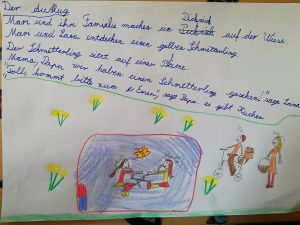 Der Ausflug
Mari und ihr Familie machen ein Picknick auf der Wiese.
Mari und Lara entdecken einen gelben Schmetterling.
Der Schmetterling sitzt auf einer Blume.
„Mama, Papa wir haben einen Schmetterling gesehen!", sagt Lara.
kommt bitte zum Essen", sagt Papa. es gibt Kuchen